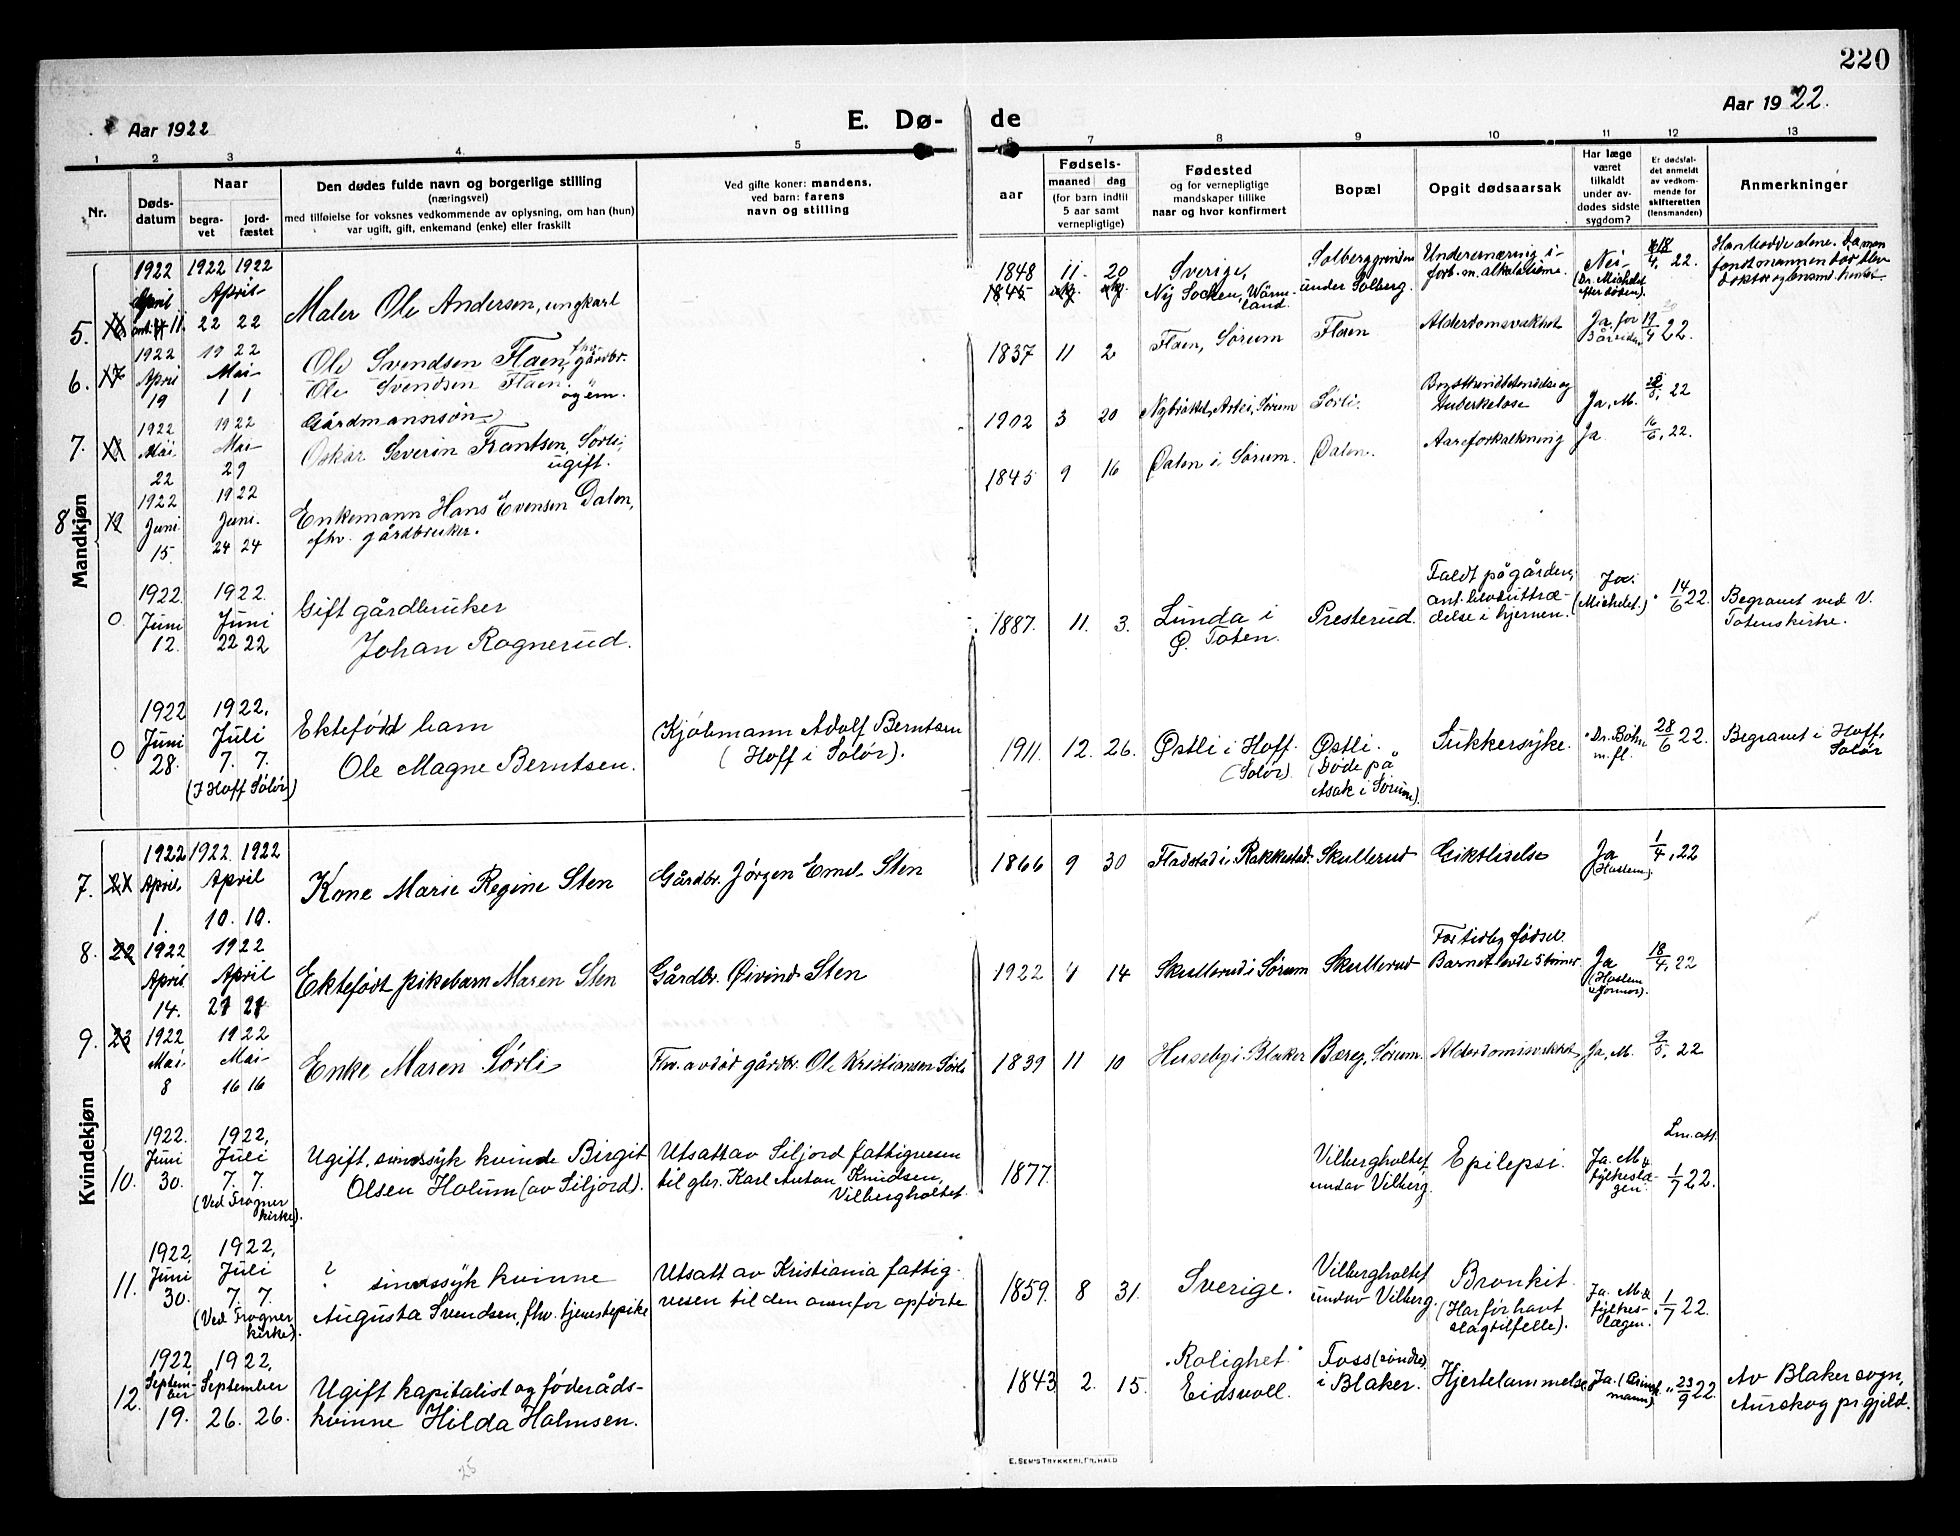 220
Aar 1922
E. Dø-
de
Aar 1922.
1 2 3 4. 5 6 7 8 9 10 11 12 13
Nr.
Døds-
datum
Naar
begra-
vet
jord-
fæstet
Den dødes fulde navn og borgerlige stilling
(næringsvei)
med tilføielse for voksnes vedkommende av oplysning, om han (hun)
var ugift, gift, enkemand (enke) eller fraskilt
Ved gifte koner: mandens,
ved barn: farens
navn og stilling
aar
Fødsels-
maaned dag
(for barn indtil
5 aar samt
vernepligtige)
Fødested
og for vernepligtige
mandskaper tillike
naar og hvor konfirmert
Bopæl
Opgit dødsaarsak
Har læge
været
tilkaldt
under av-
dødes sidste
sygdom?
Er dødsfal-
det anmeldt
av vedkom-
mende for
skifteretten
(lensmanden)
Anmerkninger
Mandkjøn
1922 1922 1922
April
5. 11. 22 22
Maler Ole Andersen, ungkarl
1848 11. 20
1845
Sverige,
Ny Socken, Wärm-
land.
Solberggrinden
under Solberg.
Underernæring i
forb. m. alkoholisme.
Nei
(Dr. Michelet
efter døden).
18/4, 22.
Han bodde alene. Da man
fandt mannen død blev
doktor og lensmd. hentet
1922 1922
6. 17 April Mai
19 1 1
Ole Svendsen Flaen, fhv. gårdbr.
Ole Svendsen Flaen. " og em.
1837 11 2
Flaen, Sørum
Flaen
Alderdomssvakhet
Ja, for
19/4 22.
1922 1922
7. Mai Mai
22 29
Gårdmannssøn
Oskar Severin Frantsen, Sørli,
ugift.
1902 3 20
Sørli.
Brysthindebetændelse og
tuberkelose
Ja, M.
22
1922 1922
8. 12 Juni Juni.
15. 24 24
Enkemann Hans Evensen Dalen,
fhv. gårdbruker.
1845 9 16
Dalen i Sørum.
Dalen.
Aareforkalkning
Ja
16/6, 22.
1922. 1922.
0 Juni Juni
12. 22 22
Gift gårdbruker
Johan Rognerud.
1887. 11. 3.
Lunda i
Ø. Toten.
Presterud.
Faldt på gården,
ant. bloduttræ-
delse i hjernen.
Ja.
(Michelet.)
" 14/6 22.
Begravet ved V.
Totens kirke.
1922 1922.
0 Juni Juli
28. 7. 7.
(I Hoff Solør)
Ektefødd barn
Ole Magne Berntsen.
Kjøbmann Adolf Berntsen
(Hoff i Solør).
1911. 12. 26.
Østli i Hoff.
(Solør)
Østli.
(Døde på
Asak i Sørum).
Sukkersyke.
" Dr. Bøhn
m. fl.
28/6 22.
Begravet i Hoff,
Solør
Kvindekjøn
1922 1922. 1922
7. 21 April April
1. 10. 10.
Kone Marie Regine Sten
Gårdbr. Jørgen Emel Sten
1866 9 30
Fladstad i Rakkestad.
Skullerud
Giktlidelse
Ja
(Haslem)
1/4, 22
8. 22 1922 1922
April April
14. 21 21
Ektefødt pikebarn Maren Sten
Gårdbr. Øivind Sten
1922 4 14
Skullerud i Sørum
Skullerud
For tidlig fødsel.
Barnet levde 5 timer
Ja
(Haslem
18/4, 22
9. 23 1922 1922
Mai Mai
8 16 16
Enke Maren Sørli
Fhv. avdød gårdbr. Ole Kristiansen Sørli
1839 11 10
Huseby i Blaker
Bareg, Sørum.
Alderdomssvakhet
Ja, M.
9/5, 22
1922. 1922,
10. Juni Juli
30. 7. 7.
(Ved Frogner
kirke).
Ugift, sindssyk kvinde Birgit
Olsen Holum (av Siljord).
Utsatt av Siljord fattigvesen
til gbr. Karl Anton Knudsen,
Vilbergholtet.
1877.
Vilbergholtet
undav Vilberg.
Epilepsi.
Ja. M. &
fylkeslæ-
gen.
Lm. att.
1/7 22.
1922, 1922,
11. Juni Juli
30. 7. 7.
(Ved Frogner
kirke).
? sindssyk kvinne
Augusta Svendsen, fhv. tjenestepike
Utsatt av Kristiania fattig-
vesen til den ovenfor opførte
1859. 8 31.
Sverige.
Vilbergholtet
undav Vilberg.
Bronkit.
(Har før havt
slagtilfelle).
Ja. M. &
fylkes-
lægen.
1/7 22.
1922 1922,
12. Septem-
ber September
19. 26. 26.
Ugift kapitalist og føderåds-
kvinne Hilda Holmsen.
1843 2. 15.
"Rolighet"
Eidsvoll.
Foss (søndre)
i Blaker.
Hjertelammelse
Ja.
" 23/9 22.
Av Blaker sogn,
Aurskog pr.gjeld.
25
E. SEM'S TRYKKERI, FR.HALD